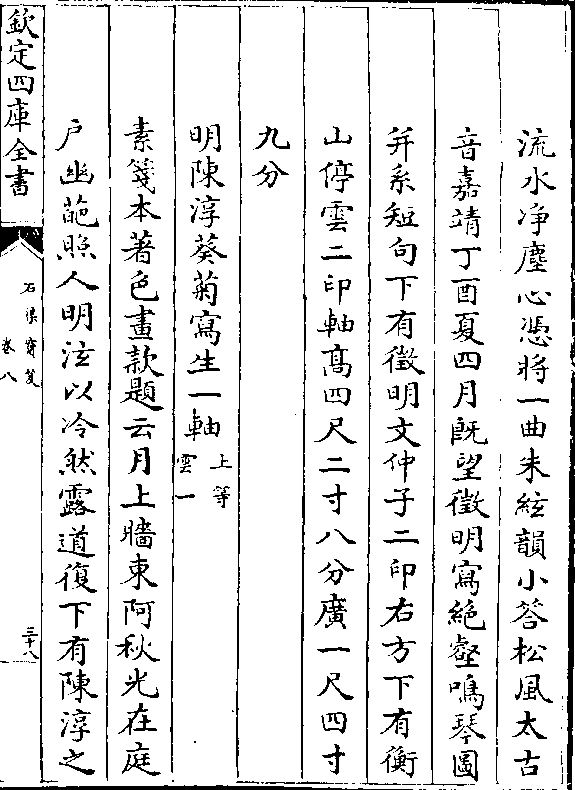 流水净塵心憑將一曲朱絃韻小答松風太古
音嘉靖丁酉夏四月既望徵明寫絶壑鳴琴圖
并系短句下有徵明文仲子二印右方下有衡
山停雲二印軸髙四尺二寸八分廣一尺四寸
九分
明陳淳葵菊寫生一軸上等
雲一
素箋本著色畫款題云月上牆東阿秋光在庭
户幽葩照人明泫以冷然露道復下有陳淳之
欽定四庫全書
石渠寶笈
卷八
三十八